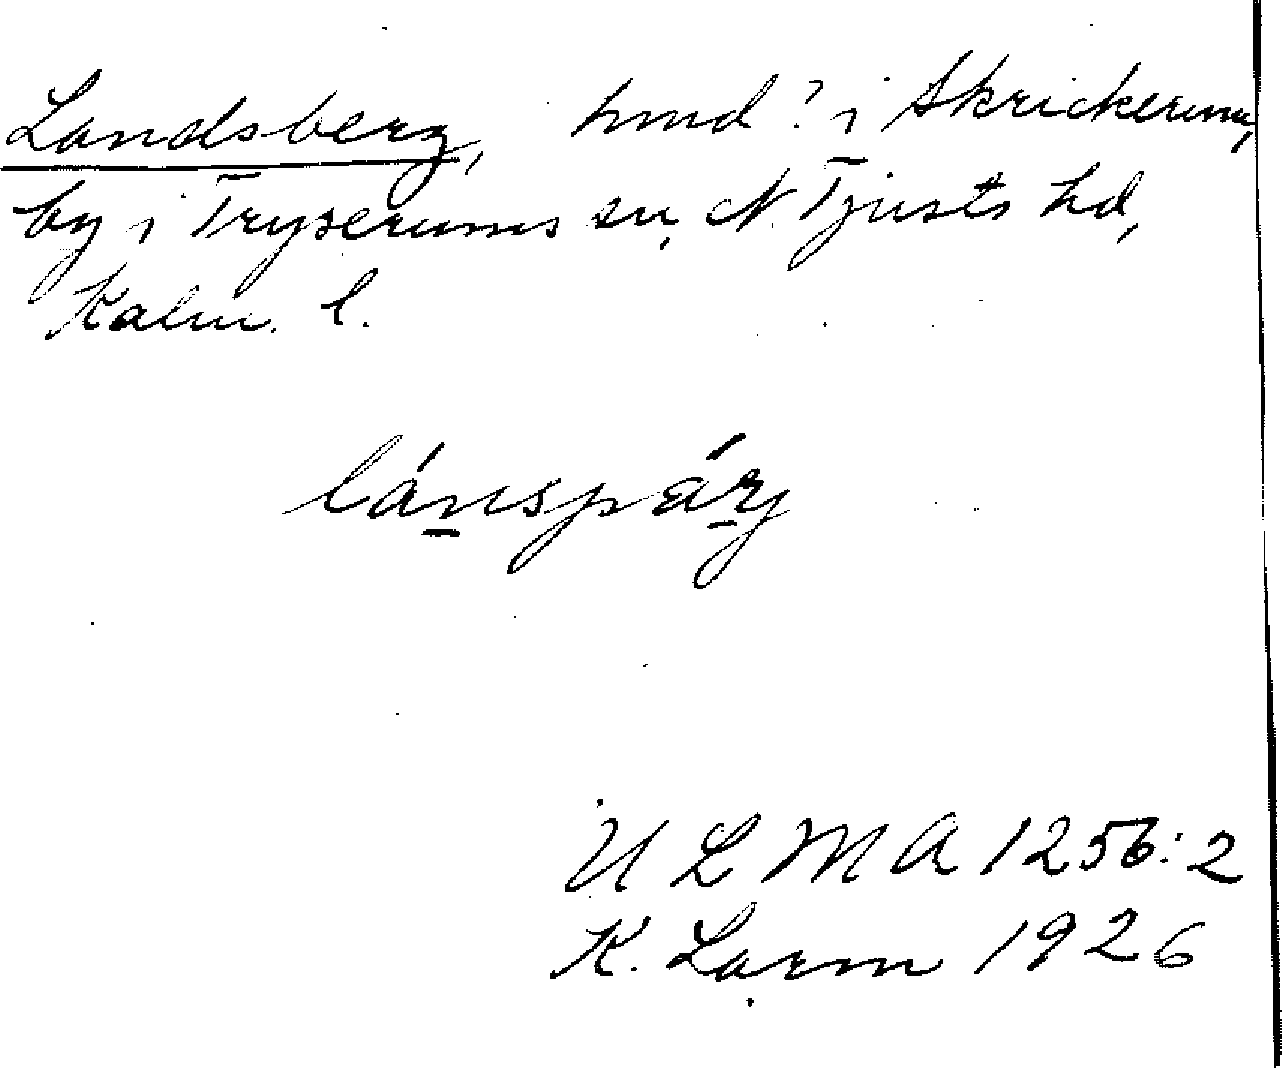 Landsberg, hmd? i Skrickerum,
by i Tryserums sn, N. Tjusts hd,
Kalm. l.
lánspárj
U L M A 1256:2
K. Larm 1926